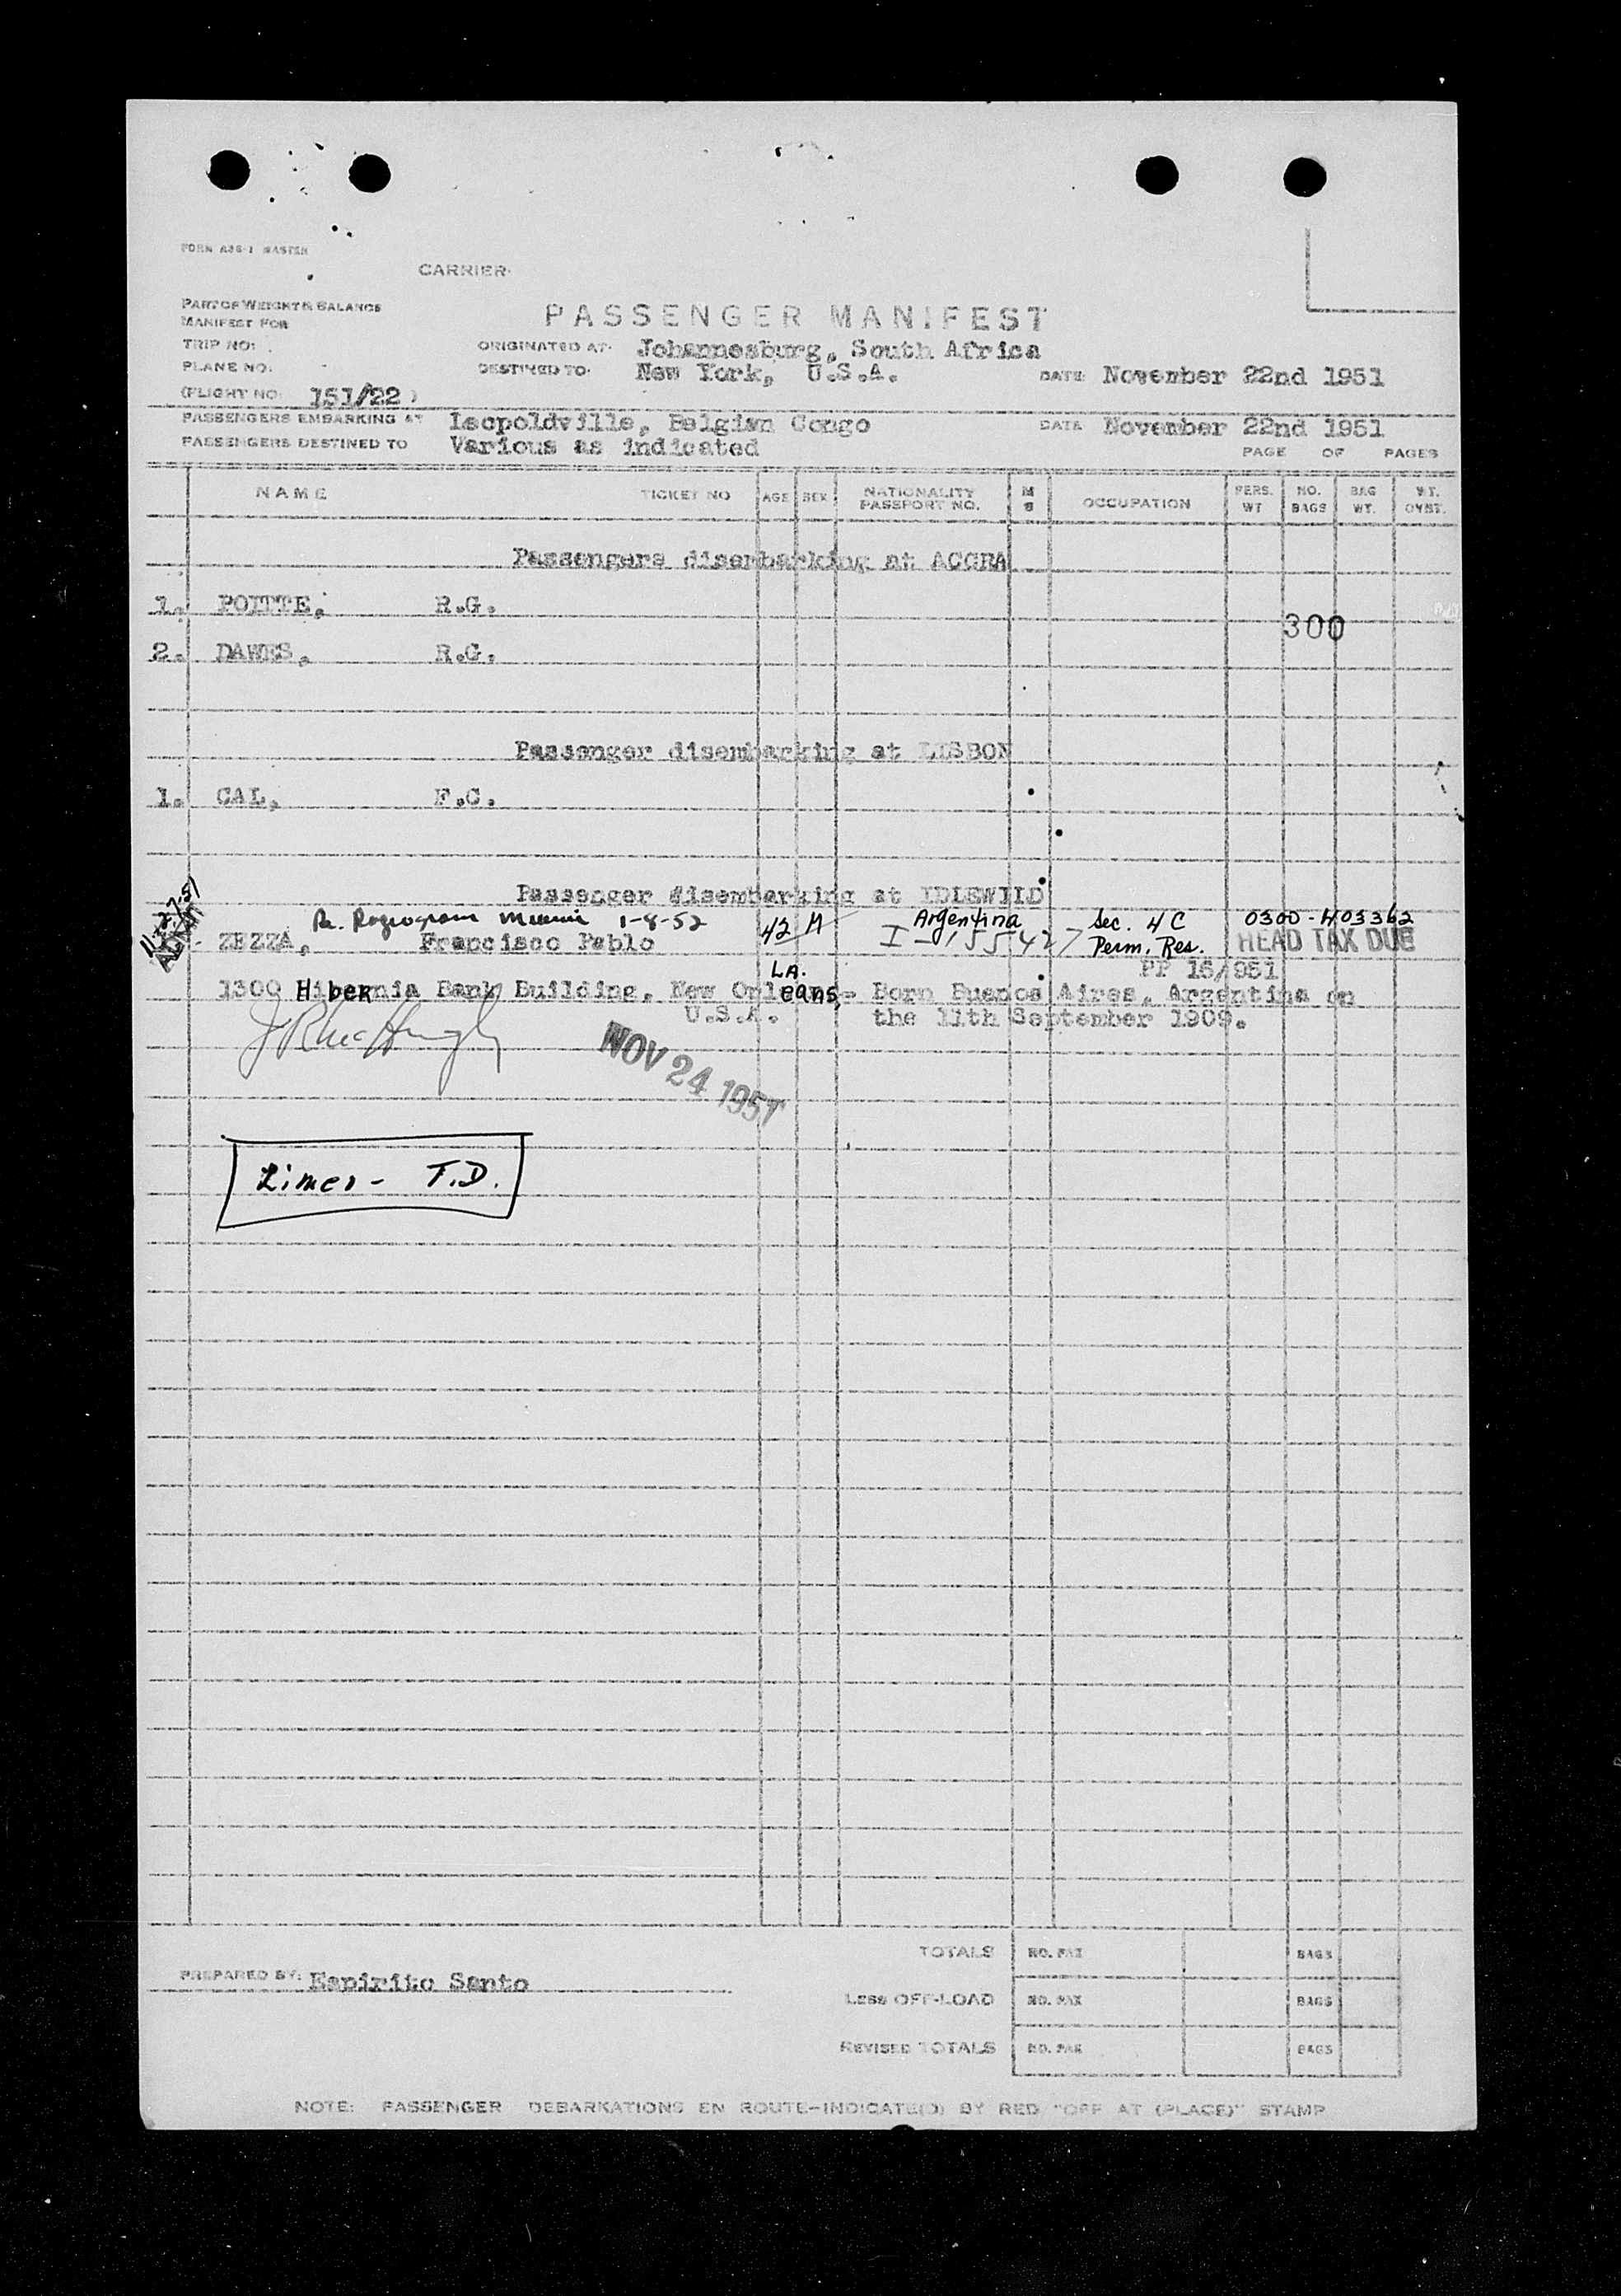 FORM A36-1 MASTER
CARRIER
PART OF WEIGHT & BALANCE
MANIFEST FOR
PASSENGER MANIFEST
TRIP NO:
ORIGINATED AT: Johannesburg, South Africa
PLANE NO.
DESTINED TO: New York, U.S.A. DATE November 22nd 1951
(FLIGHT NO: 151/22 )
PASSENGERS EMBARKING AT Leopoldville, Belgian Congo DATE November 22nd 1951
PASSENGERS DESTINED TO Various as indicated
PAGE OF PAGES
NAME TICKET NO AGE SEX NATIONALITY PASSPORT NO. M S OCCUPATION PERS. WT NO. BAGS BAG WT. WT. OVWT.
Passengers disembarking at ACCRA
1. POITTE, R.G.
300
2. DAWES, R.G.
Passenger disembarking at LISBON
1. CAL, F.C.
Passenger disembarking at IDLEWILD
1-8-52
42 M Argentina Sec. 4 C 0300-H03362
ZEZZA, Francisco Pablo I-155427 Perm. Res. HEAD TAX DUE
PP 16/951
LA.
1300 Hibernia Bank Building, New Orleans,- Born Buenos Aires, Argentina on
U.S.A. the 11th September 1909.
NOV 24 1951
T.D.
TOTALS NO. PAX BAGS
PREPARED BY: Espirito Santo
Less OFF-LOAD NO. PAX BAGS
REVISED TOTALS NO. PAX BAGS
NOTE: PASSENGER DEBARKATIONS EN ROUTE-INDICATE(D) BY RED "OFF AT (PLACE)" STAMP